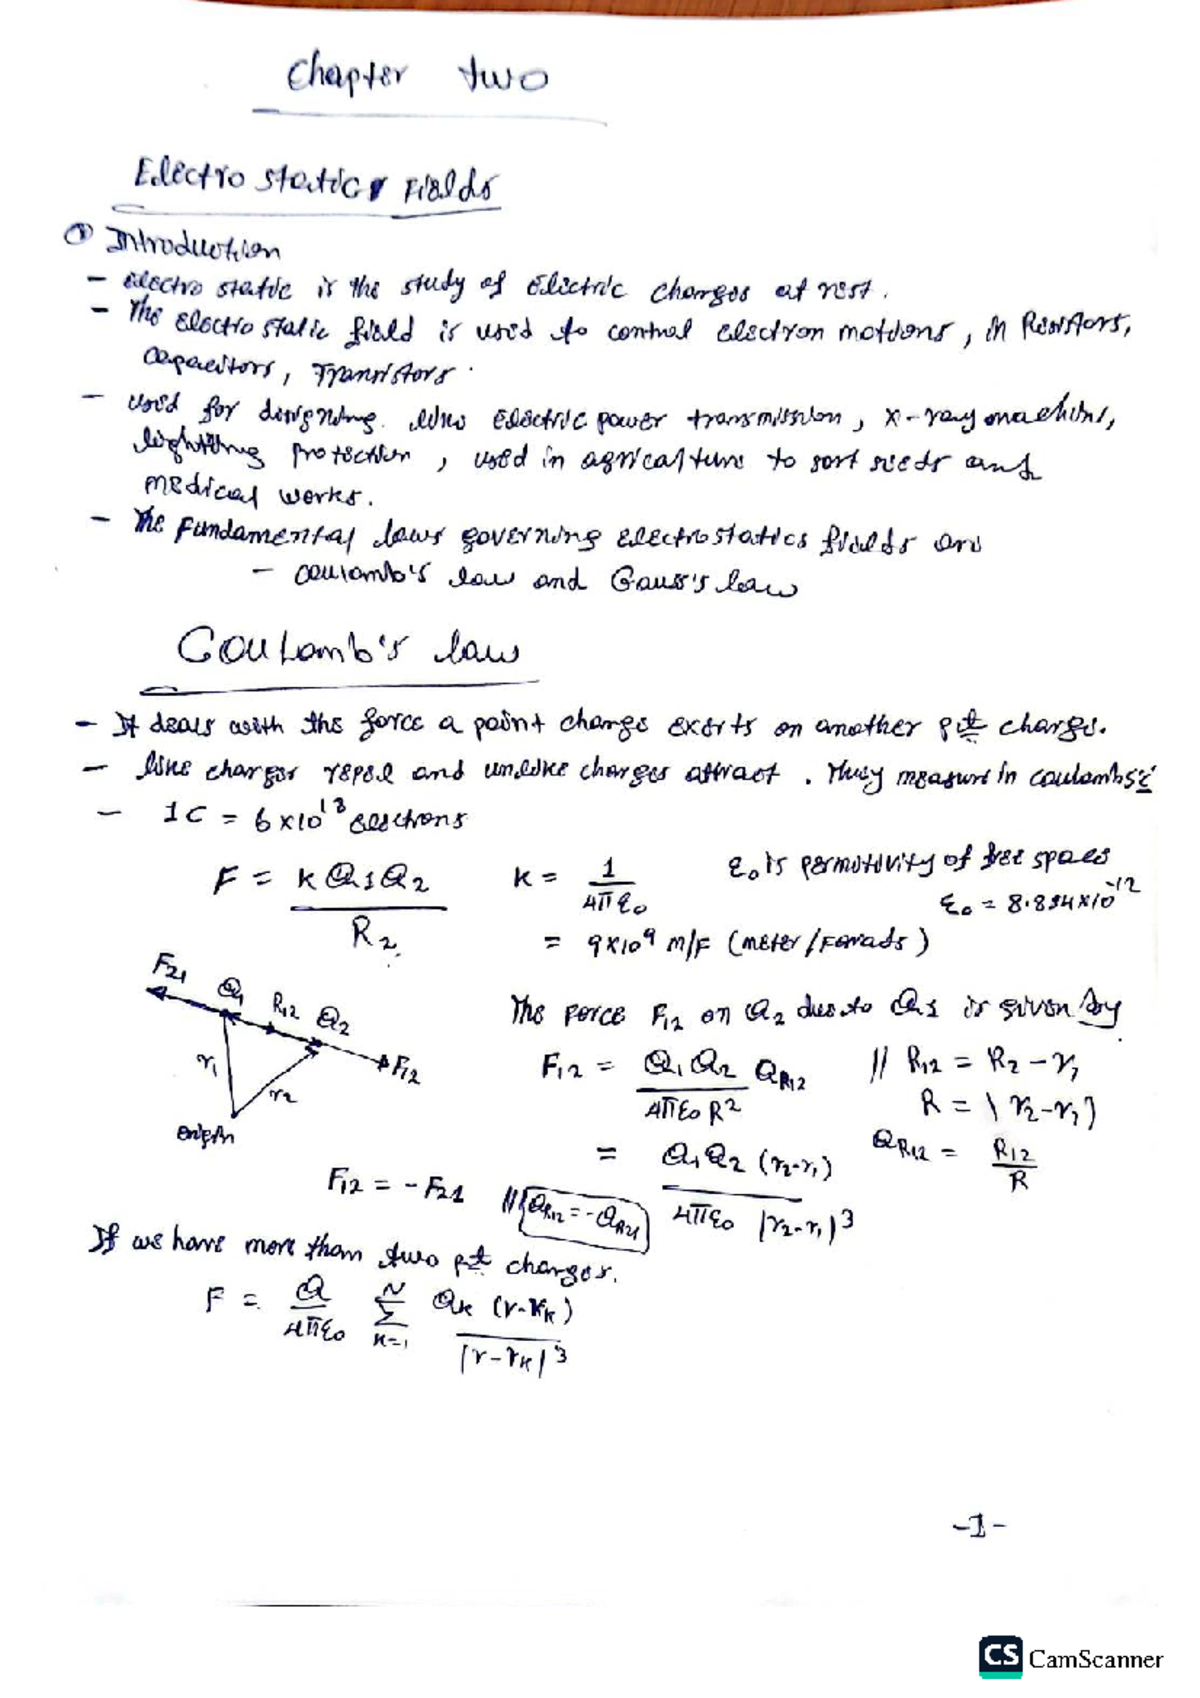 Chapter two
Electro static Fields
① Introduction
- electro static is the study of Electric charges at rest.
- The electro static field is used to control electron motions, in Resistors,
capacitors, Transistors.
- used for designing like electric power transmission, x-ray machine,
lighting protection, used in agriculture to sort seeds and
medical works.
- The Fundamental laws governing electrostatics fields are
- coulomb's law and Gauss's law
Coulomb's law
- It deals with the force a point charge exerts on another pt charge.
- like charges repel and unlike charges attract. They measure in coulombs C
- 1C = 6x10^18 electrons
F = kQ1Q2 / R2    K = 1 / 4πε0    ε0 is permitivity of free space
ε0 = 8.854x10^-12
= 9x10^9 m/F (meter/Farads)
F21 Q1 R12 Q2 F12
r1 r2
origin
The force F12 on Q2 due to Q1 is given by
F12 = Q1Q2 / 4πε0R^2 aR12    // R12 = R2 - r1
R = |r2-r1|
= Q1Q2 (r2-r1) / 4πε0 |r2-r1|^3    aR12 = R12 / R
F12 = -F21    // aR12 = -aR21
If we have more than two pt charges.
F = Q / 4πε0 Σ N k=1 Qk (r-rk) / |r-rk|^3
-1-
CS CamScanner